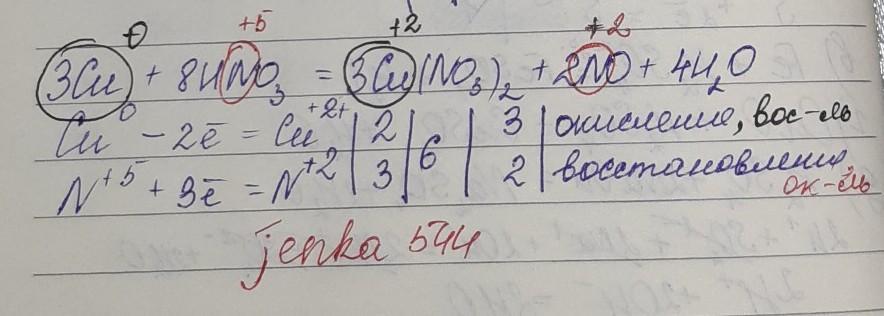 0 +5 +2 +2
3Cu + 8HNO₃ = 3Cu(NO₃)₂ + 2NO + 4H₂O
Cu⁰ - 2ē = Cu⁺²⁺ | 2 | 6 | 3 | окисление, вос-ль
N⁺⁵ + 3ē = N⁺² | 3 | | 2 | восстановление,
ок-ль
jenka 544